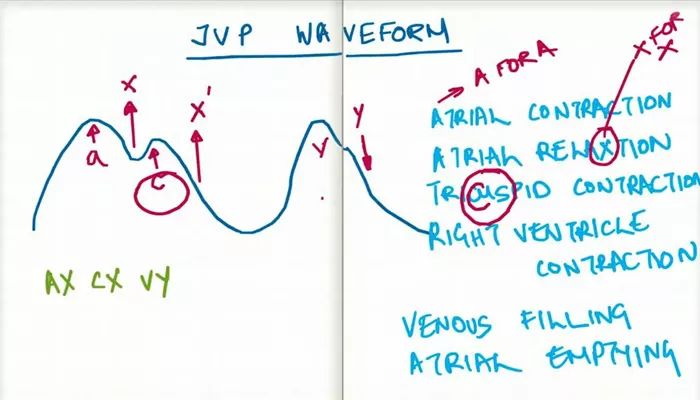 JVP WAVEFORM
A FOR A
X FOR X
X
X'
a
c
Y
Y
ATRIAL CONTRACTION
ATRIAL RELAXTION
TRICUSPID CONTRACTION
RIGHT VENTRICLE
CONTRACTION
AX CX VY
VENOUS FILLING
ATRIAL EMPTYING